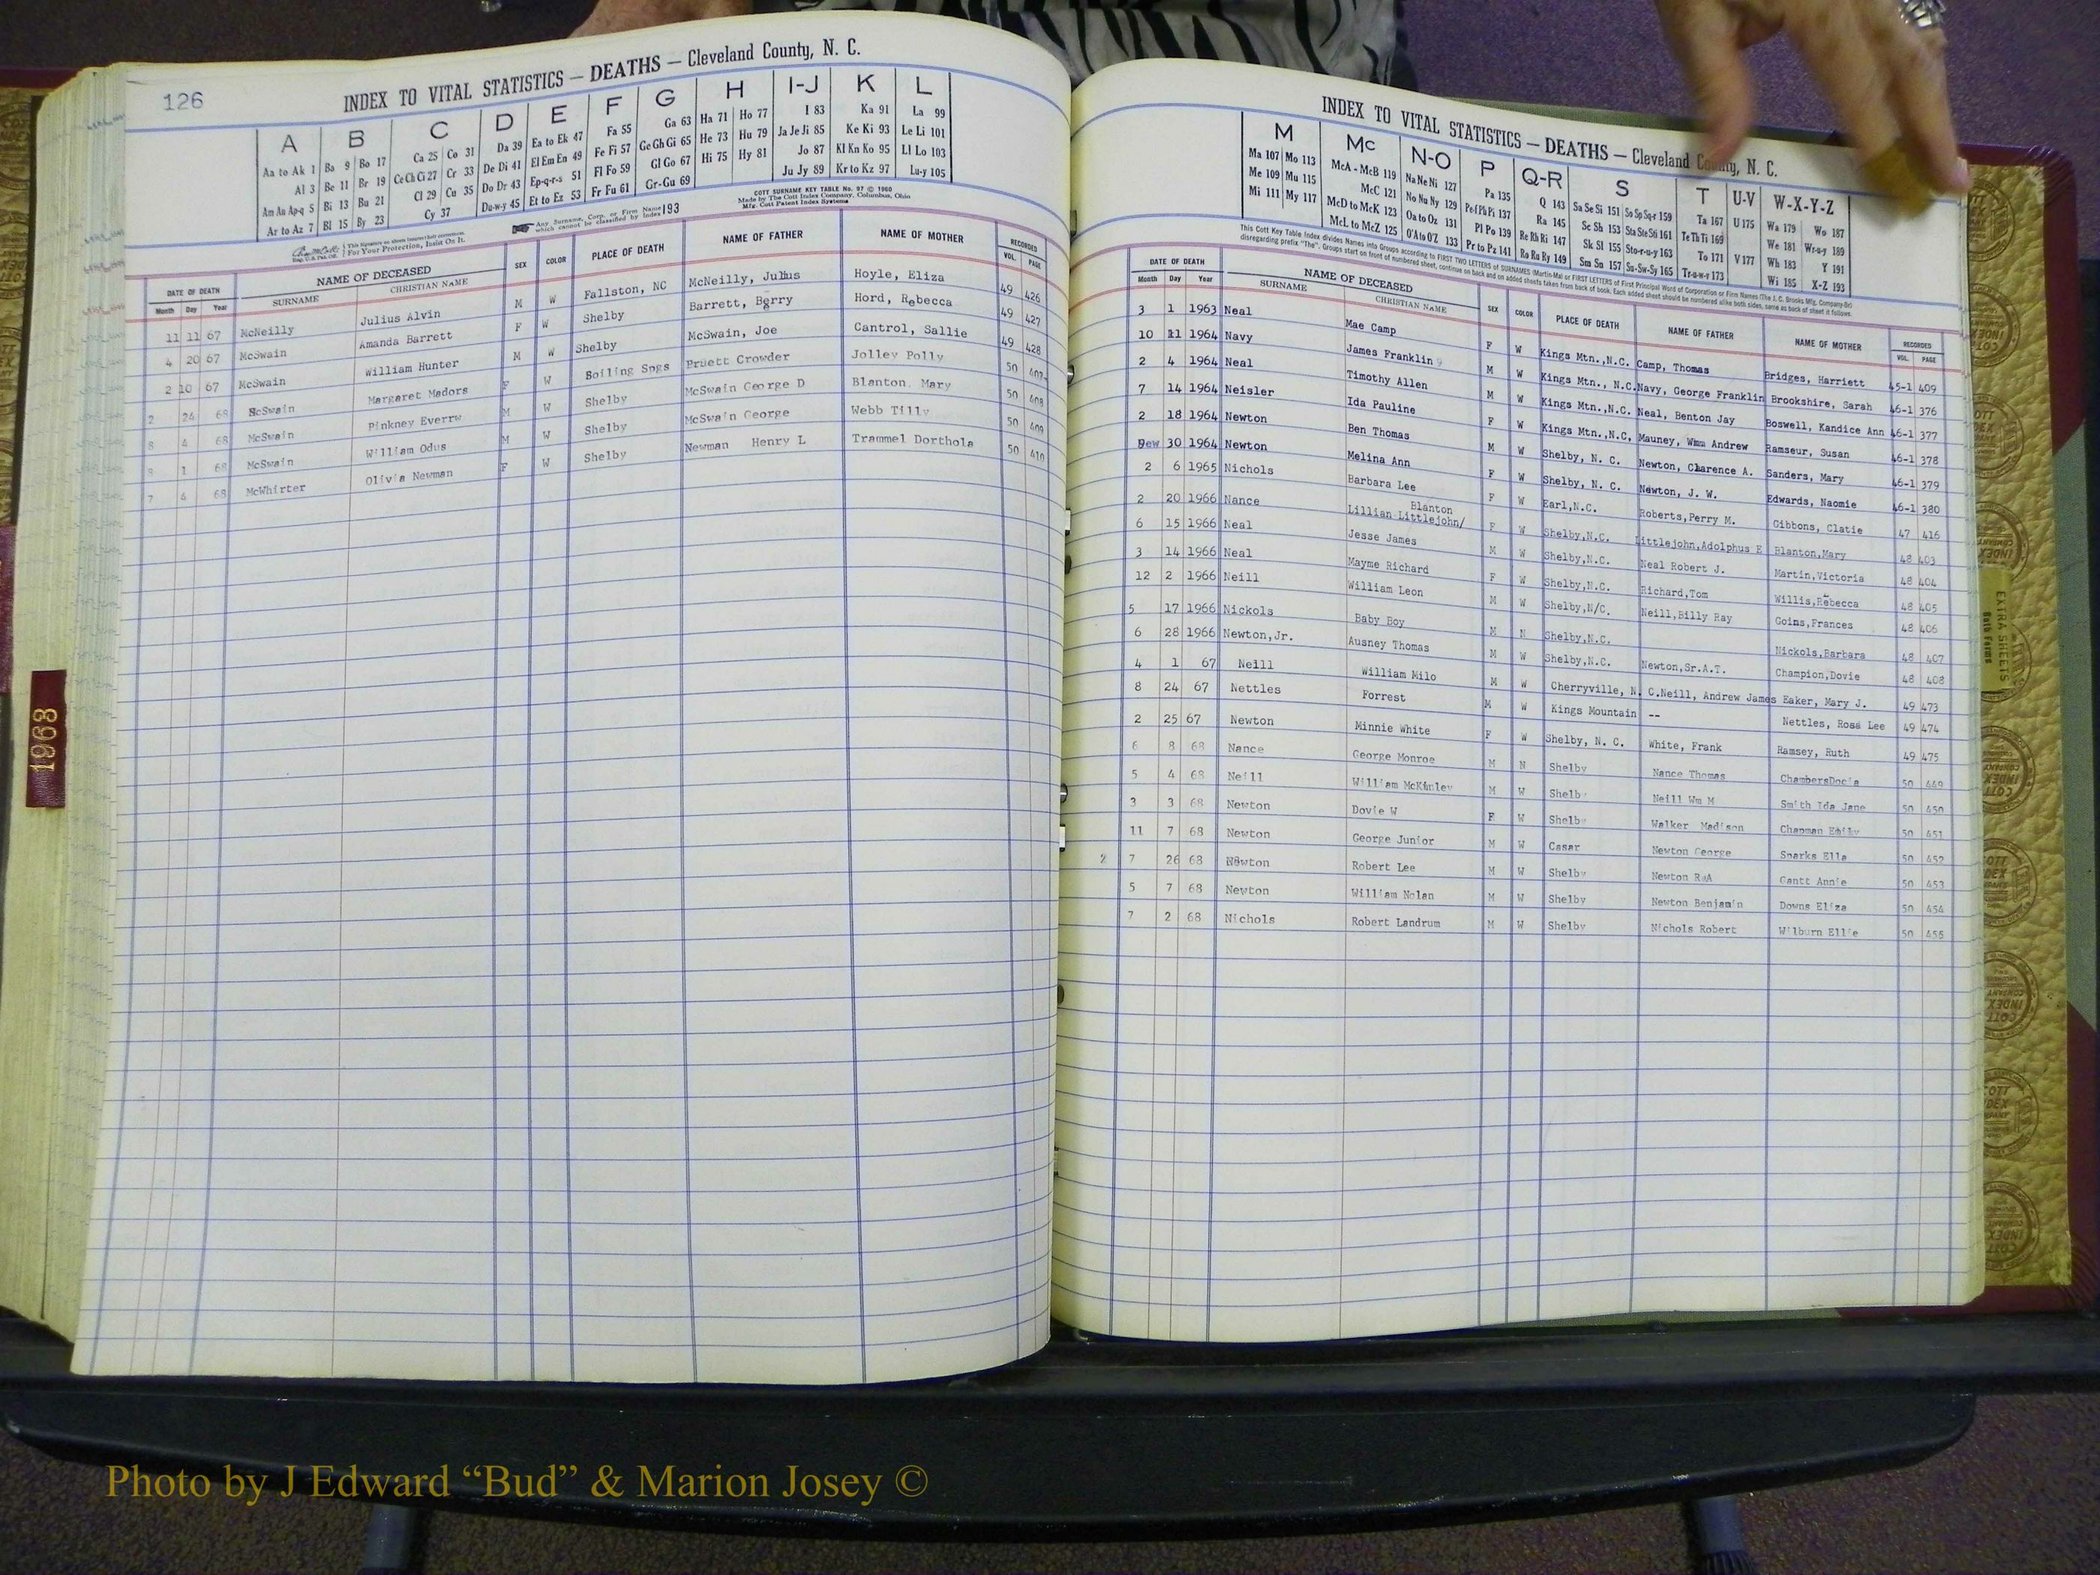 126
INDEX TO VITAL STATISTICS — DEATHS — Cleveland County, N. C.
A B C D E F G H I-J K L
Aa to Ak 1 Ba 9 Bo 17 Ca 25 Co 31 Da 39 Ea to Ek 47 Fa 55 Ga 63 Ha 71 Ho 77 I 83 Ka 91 La 99
Al 3 Be 11 Br 19 Ce Ch Ci 27 Cr 33 De Di 41 El Em En 49 Fe Fi 57 Ge Gh Gi 65 He 73 Hu 79 Ja Je Ji 85 Ke Ki 93 Le Li 101
Am An Ap-q 5 Bi 13 Bu 21 Cl 29 Cu 35 Do Dr 43 Ep-q-r-s 51 Fl Fo 59 Gl Go 67 Hi 75 Hy 81 Jo 87 Kl Kn Ko 95 Ll Lo 103
Ar to Az 7 Bl 15 By 23 Cy 37 Du-w-y 45 Et to Ez 53 Fr Fu 61 Gr-Gu 69 Ju Jy 89 Kr to Kz 97 Lu-y 105
COTT SURNAME KEY TABLE No. 97 © 1960
Made by The Cott Index Company, Columbus, Ohio
Mfg. Cott Patent Index Systems
Any Surname, Corp. or Firm Name which cannot be classified by Index 193
For Your Protection, Insist On It.
DATE OF DEATH NAME OF DECEASED SEX COLOR PLACE OF DEATH NAME OF FATHER NAME OF MOTHER RECORDED
Month Day Year SURNAME CHRISTIAN NAME VOL. PAGE
11 11 67 McNeilly Julius Alvin M W Fallston, NC McNeilly, Julius Hoyle, Eliza 49 426
4 20 67 McSwain Amanda Barrett F W Shelby Barrett, Berry Hord, Rebecca 49 427
2 10 67 McSwain William Hunter M W Shelby McSwain, Joe Cantrol, Sallie 49 428
2 24 68 McSwain Margaret Madors F W Boiling Spgs Pruett Crowder Jolley Polly 50 407
8 4 68 McSwain Pinkney Everrw M W Shelby McSwain George D Blanton Mary 50 408
9 1 68 McSwain William Odus M W Shelby McSwain George Webb Tilly 50 409
7 4 68 McWhirter Olivia Newman F W Shelby Newman Henry L Trammel Dorthola 50 410
1968
INDEX TO VITAL STATISTICS — DEATHS — Cleveland County, N. C.
M Mc N-O P Q-R S T U-V W-X-Y-Z
Ma 107 Mo 113 McA - McB 119 Na Ne Ni 127 Pa 135 Q 143 Sa Se Si 151 So Sp Sq-r 159 Ta 167 U 175 Wa 179 Wo 187
Me 109 Mu 115 McC 121 No Nu Ny 129 Pe f Ph Pi 137 Ra 145 Sc Sh 153 Sta Ste Sti 161 Te Th Ti 169 V 177 We 181 Wr-u-y 189
Mi 111 My 117 McD to McK 123 Oa to Oz 131 Pl Po 139 Re Rh Ri 147 Sk Sl 155 Sto-r-u-y 163 To 171 Wh 183 Y 191
McL to McZ 125 O'A to O'Z 133 Pr to Pz 141 Ro Ru Ry 149 Sm Sn 157 Su-Sw-Sy 165 Tr-u-w-r 173 Wi 185 X-Z 193
This Cott Key Table Index divides Names into Groups according to FIRST TWO LETTERS of SURNAMES (Martin-Ma) or FIRST LETTERS of First Principal Word of Corporation or Firm Names (The J. C. Brooks Mfg. Company-Br)
disregarding prefix "The". Groups start on front of numbered sheet, continue on back and on added sheets taken from back of book. Each added sheet should be numbered alike both sides, same as back of sheet it follows.
DATE OF DEATH NAME OF DECEASED SEX COLOR PLACE OF DEATH NAME OF FATHER NAME OF MOTHER RECORDED
Month Day Year SURNAME CHRISTIAN NAME VOL. PAGE
3 1 1963 Neal Mae Camp F W Kings Mtn.,N.C. Camp, Thomas Bridges, Harriett 45-1 409
10 11 1964 Navy James Franklin M W Kings Mtn., N.C. Navy, George Franklin Brookshire, Sarah 46-1 376
2 4 1964 Neal Timothy Allen M W Kings Mtn.,N.C. Neal, Benton Jay Boswell, Kandice Ann 46-1 377
7 14 1964 Neisler Ida Pauline F W Kings Mtn.,N.C. Mauney, Wmm Andrew Ramseur, Susan 46-1 378
2 18 1964 Newton Ben Thomas M W Shelby, N. C. Newton, Clarence A. Sanders, Mary 46-1 379
30 1964 Newton Melina Ann F W Shelby, N. C. Newton, J. W. Edwards, Naomie 46-1 380
2 6 1965 Nichols Barbara Lee F W Earl,N.C. Roberts,Perry M. Gibbons, Clatie 47 416
2 20 1966 Nance Lillian Littlejohn/ Blanton F W Shelby,N.C. Littlejohn,Adolphus E Blanton,Mary 48 403
6 15 1966 Neal Jesse James M W Shelby,N.C. Neal Robert J. Martin,Victoria 48 404
3 14 1966 Neal Mayme Richard F W Shelby,N.C. Richard,Tom Willis,Rebecca 48 405
12 2 1966 Neill William Leon M W Shelby,N/C. Neill,Billy Ray Goins,Frances 48 406
5 17 1966 Nickols Baby Boy M N Shelby,N.C. Nickols,Barbara 48 407
6 28 1966 Newton,Jr. Ausney Thomas M W Shelby,N.C. Newton,Sr.A.T. Champion,Dovie 48 408
4 1 67 Neill William Milo M W Cherryville, N. C. Neill, Andrew James Eaker, Mary J. 49 473
8 24 67 Nettles Forrest M W Kings Mountain -- Nettles, Rosa Lee 49 474
2 25 67 Newton Minnie White F W Shelby, N. C. White, Frank Ramsey, Ruth 49 475
6 8 68 Nance George Monroe M N Shelby Nance Thomas ChambersDocia 50 449
5 4 68 Neill William McKinley M W Shelby Neill Wm M Smith Ida Jane 50 450
3 3 68 Newton Dovie W F W Shelby Walker Madison Chapman Emily 50 451
11 7 68 Newton George Junior M W Casar Newton George Sparks Ella 50 452
2 7 26 68 Newton Robert Lee M W Shelby Newton RaA Gantt Annie 50 453
5 7 68 Newton William Nolan M W Shelby Newton Benjamin Downs Eliza 50 454
7 2 68 Nichols Robert Landrum M W Shelby Nichols Robert Wilburn Ellie 50 455
EXTRA SHEETS
Both Forms
COTT INDEX COMPANY
Photo by J Edward “Bud” & Marion Josey ©